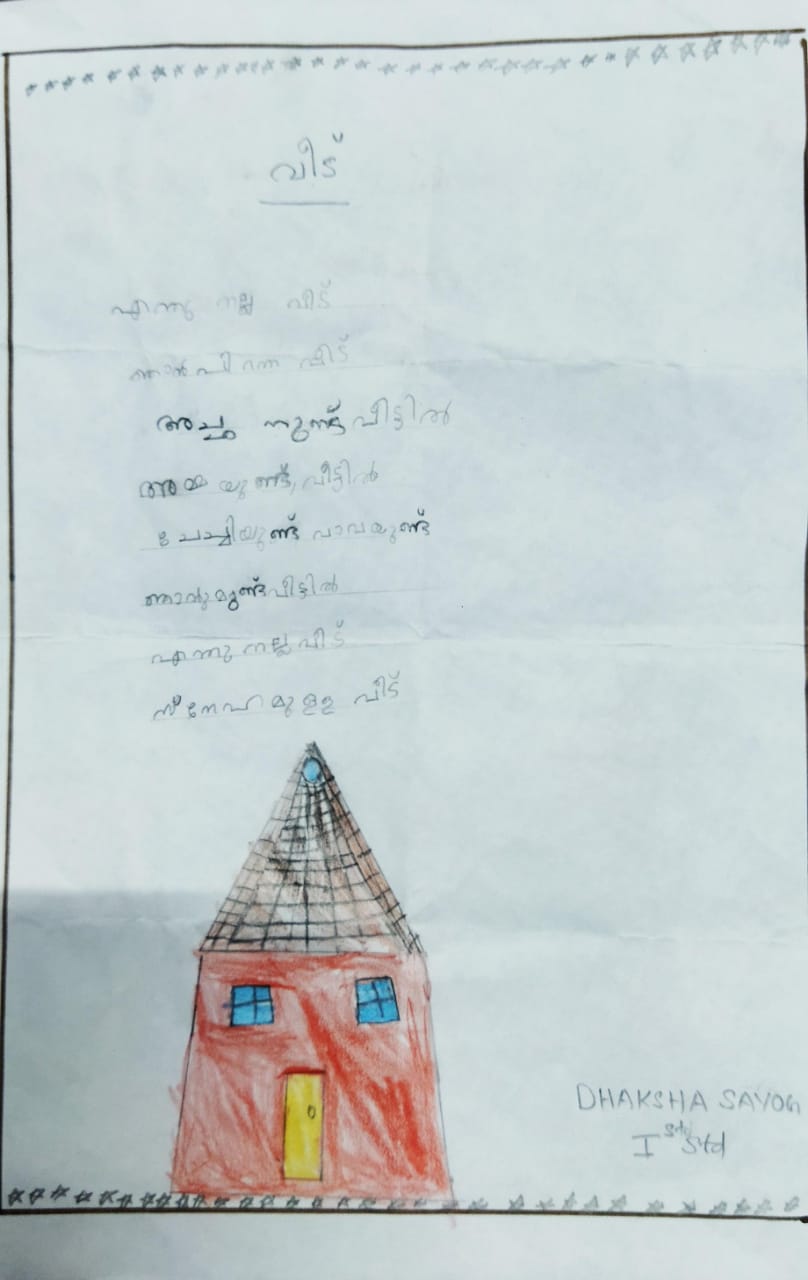 വീട്
എന്നു നല്ല വീട്
ഞാൻ പിറന്ന വീട്
അച്ഛ നുണ്ട് വീട്ടിൽ
അമ്മ യുണ്ട്, വീട്ടിൽ
ചേച്ചിയുണ്ട് വാവയുണ്ട്
ഞാനുമുണ്ട് വീട്ടിൽ
എന്നു നല്ല വീട്
സ്നേഹമുള്ള വീട്
DHAKSHA SAYOG
I Std